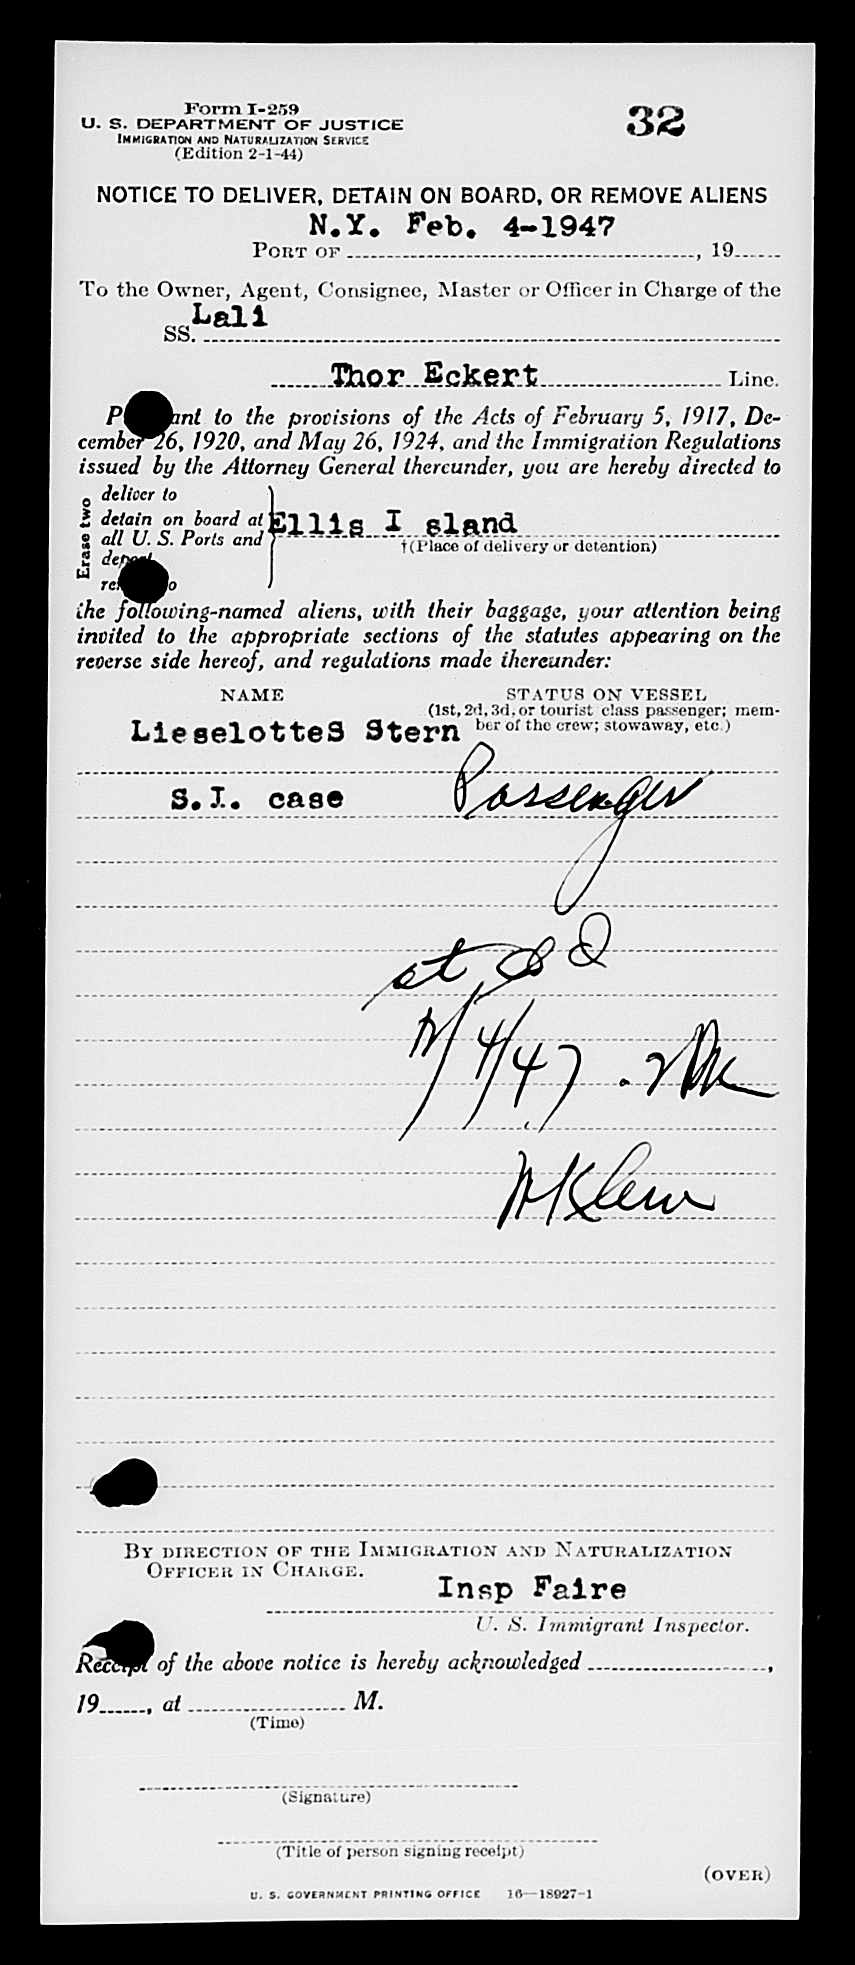 Form I-259
32
U. S. DEPARTMENT OF JUSTICE
IMMIGRATION AND NATURALIZATION SERVICE
(Edition 2-1-44)
NOTICE TO DELIVER, DETAIN ON BOARD, OR REMOVE ALIENS
N.Y. Feb. 4-1947
PORT OF , 19
To the Owner, Agent, Consignee, Master or Officer in Charge of the
Lali
SS.
Thor Eckert Line.
ant to the provisions of the Acts of February 5, 1917, De-
cember 26, 1920, and May 26, 1924, and the Immigration Regulations
issued by the Attorney General thereunder, you are hereby directed to
Erase two
deliver to
detain on board at
all U. S. Ports and
Ellis I sland
†(Place of delivery or detention)
the following-named aliens, with their baggage, your attention being
invited to the appropriate sections of the statutes appearing on the
reverse side hereof, and regulations made thereunder:
NAME
STATUS ON VESSEL
(1st, 2d, 3d, or tourist class passenger; mem-
ber of the crew; stowaway, etc.)
LieselotteS Stern
S.I. case
Passenger
at
4/47
BY DIRECTION OF THE IMMIGRATION AND NATURALIZATION
OFFICER IN CHARGE.
Insp Faire
U. S. Immigrant Inspector.
Receipt of the above notice is hereby acknowledged ,
19 , at M.
(Time)
(Signature)
(Title of person signing receipt)
(OVER)
U. S. GOVERNMENT PRINTING OFFICE 16—18927-1